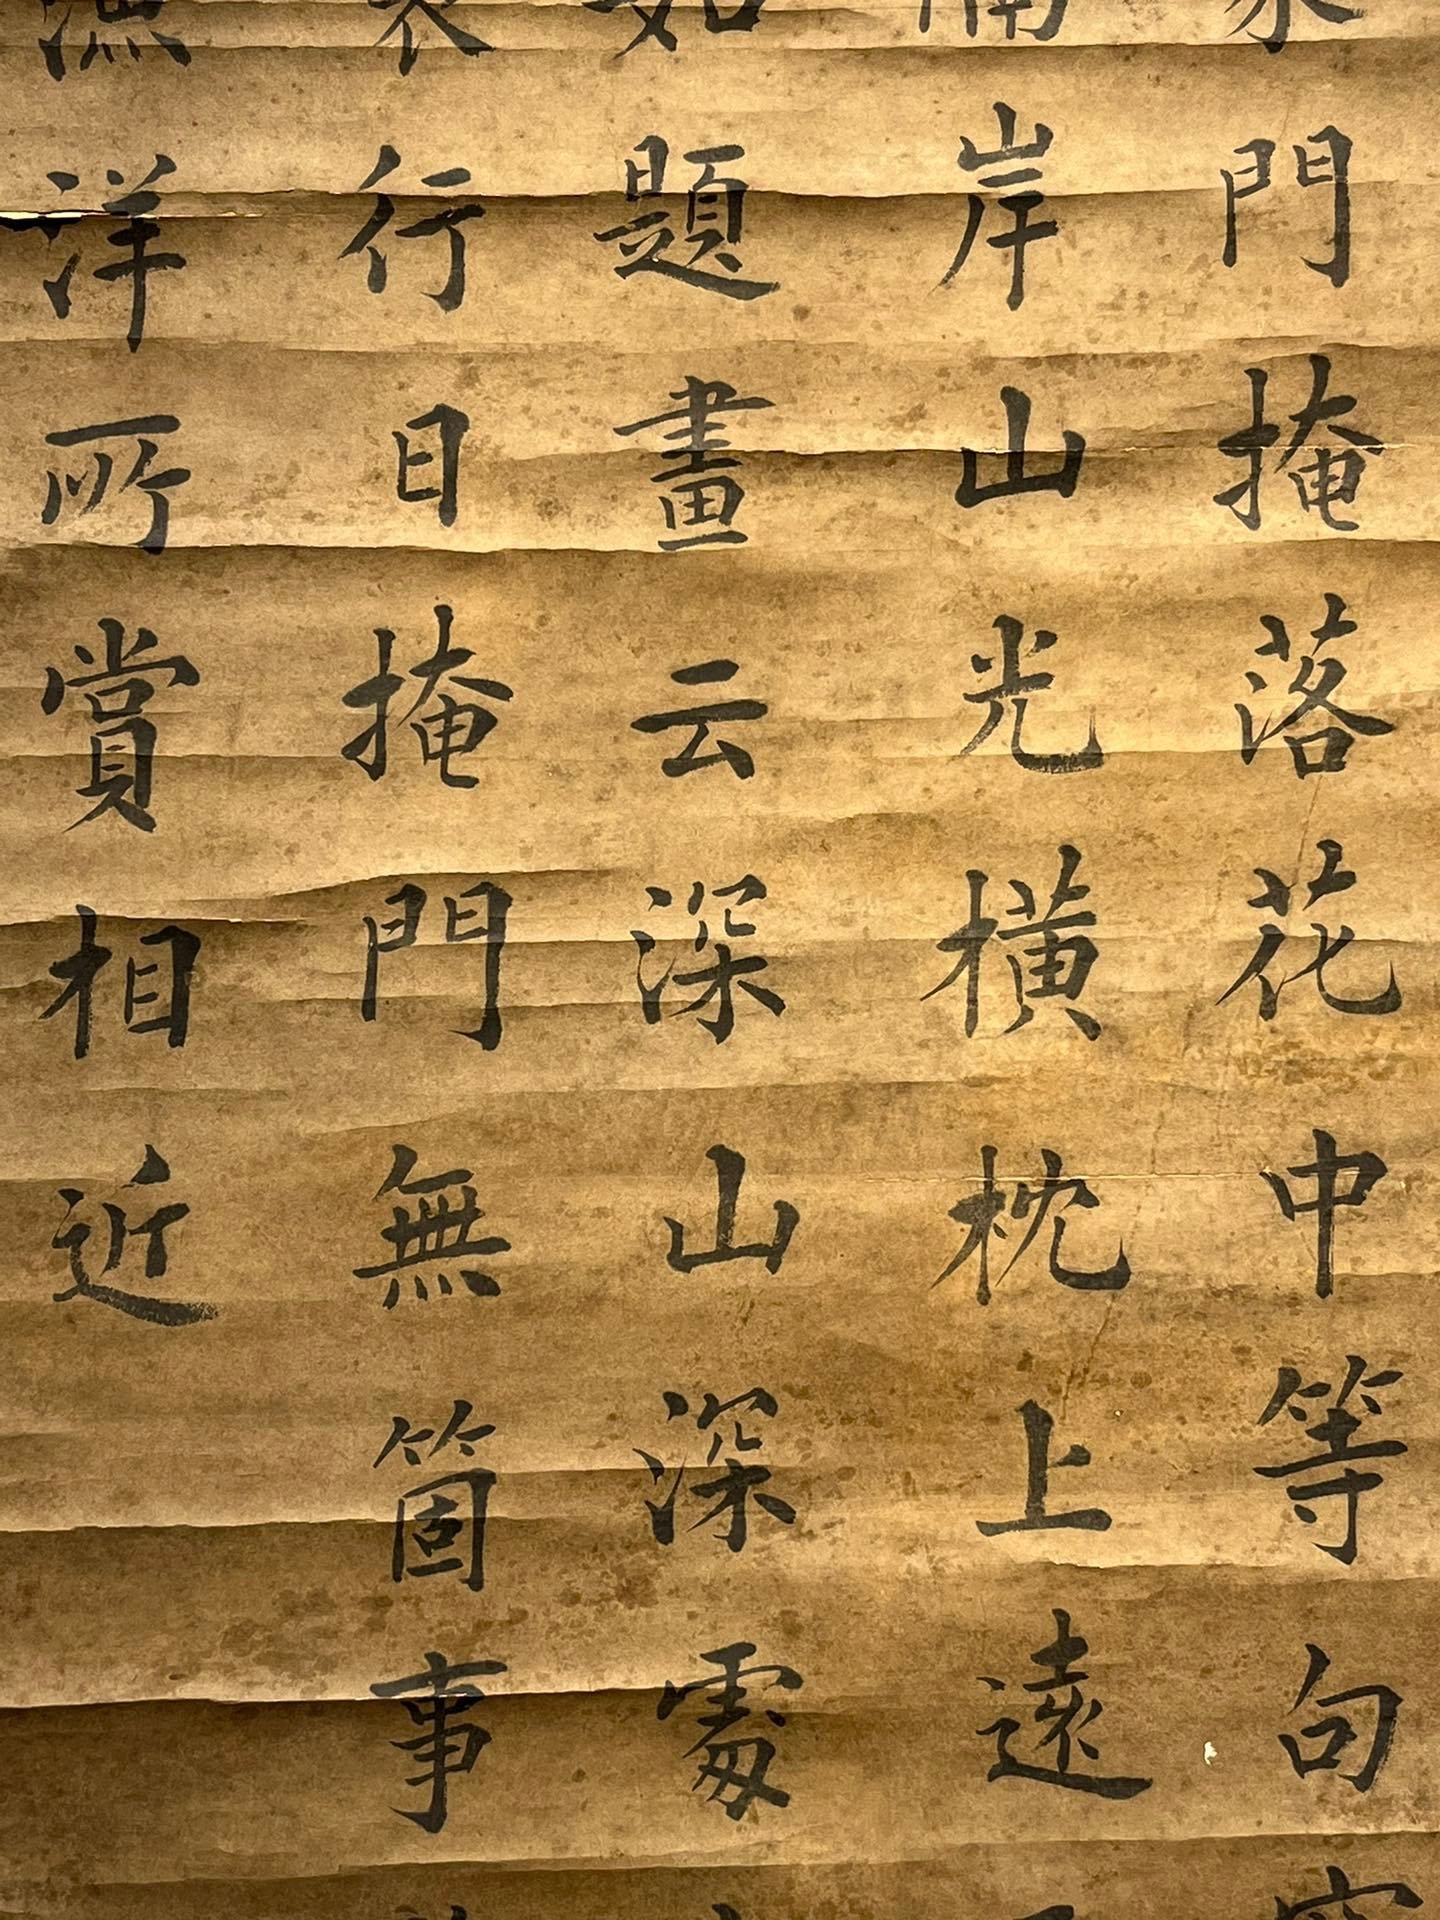 門掩落花中等句
岸山光橫枕上遠
如題畫云深山深處
行日掩門無箇事
漁洋所賞相近